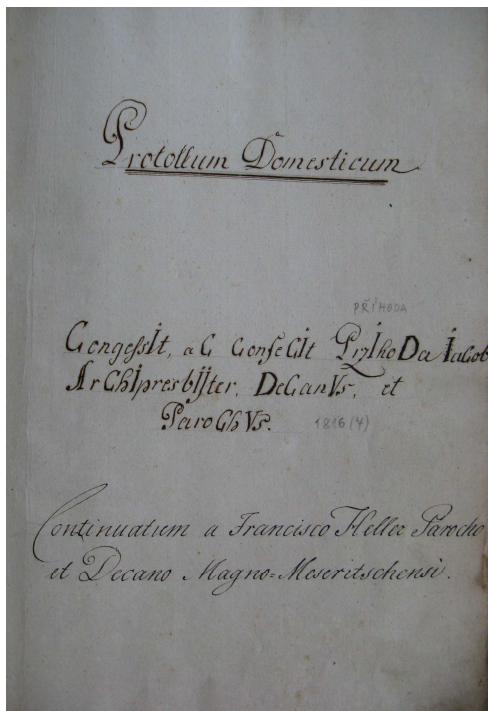 Protollum Domesticum
PŘÍHODA
CongessIt, aC ConfeCIt PrzIhoDa IaCob
ArChIpresbIjter, DeCanVs, et
ParoChVs. 1816 (4)
Continuatum a Francisco Heller Parocho
et Decano Magno-Meseritschensi.